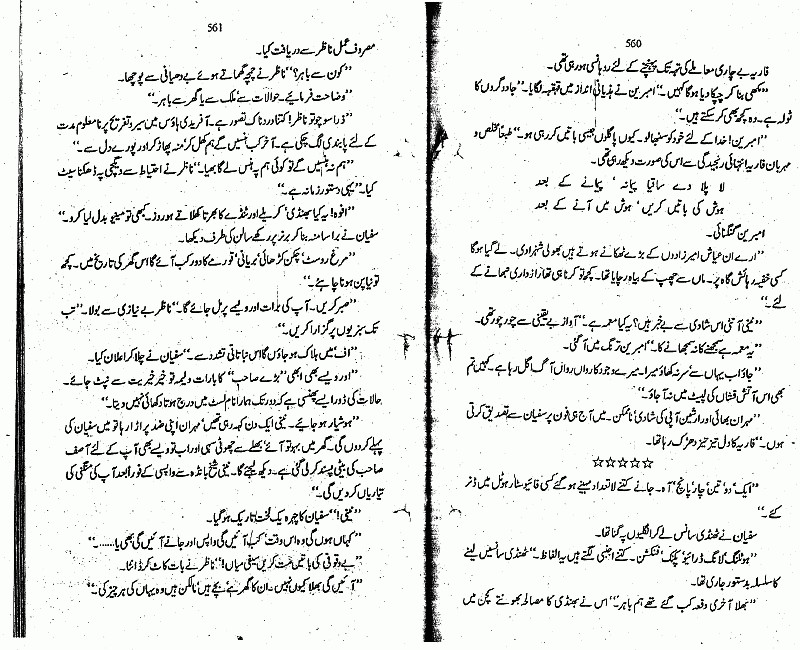 560
قاریہ بے چاری معاملے کی تہہ تک پہنچنے کے لئے روہانسی ہو رہی تھی۔
”مکھی بنا کر چپکا دیا ہو گا کہیں۔“ امبرین نے ہذیانی انداز میں قہقہہ لگایا۔ ”جادوگروں کا
ٹولہ ہے۔ وہ کچھ بھی کر سکتے ہیں۔“
”امبرین! خدا کے لئے خود کو سنبھالو۔ کیوں پاگلوں جیسی باتیں کر رہی ہو۔“ طبعاً مخلص و
مہربان قاریہ انتہائی رنجیدگی سے اس کی صورت دیکھ رہی تھی۔
لا پلا دے ساقیا پیمانہ، پیمانے کے بعد
ہوش کی باتیں کریں، ہوش میں آنے کے بعد
امبرین گنگنائی۔
”ارے ان عیاش امیر زادوں کے بڑے ٹھکانے ہوتے ہیں بھولی شہزادی۔ لے گیا ہو گا
کسی خفیہ رہائش گاہ پر۔ ماں سے چھپ کے بیاہ رچایا تھا۔ کچھ تو کرنا ہی تھا راز داری نبھانے کے
لئے۔“
”نینی آنٹی اس شادی سے بے خبر ہیں؟ یہ کیا معمہ ہے۔“ آواز بے یقینی سے چور چور تھی۔
”یہ معمہ ہے سمجھنے کا نہ سمجھانے کا۔“ امبرین ترنگ میں آ گئی۔
”جاؤ اب یہاں سے سر نہ کھاؤ میرا۔ میرے وجود کا رواں رواں آگ اگل رہا ہے۔ کہیں تم
بھی اس آتش فشاں کی لپیٹ میں نہ آ جاؤ۔“
”مہران بھائی اور ارشین آپی کی شادی! ناممکن۔ میں آج ہی فون پر سفیان سے تصدیق کرتی
ہوں۔“ قاریہ کا دل تیز تیز دھڑک رہا تھا۔
☆☆☆☆☆
”ایک‘ دو‘ تین‘ چار‘ پانچ‘ آہ۔ جانے کتنے لاتعداد مہینے ہو گئے کسی فائیو سٹار ہوٹل میں ڈنر
کئے۔“
سفیان نے ٹھنڈی سانس لے کر انگلیوں پہ گنا تھا۔
”ہوٹلنگ‘ لانگ ڈرائیو‘ پکنک‘ فنکشن۔ کتنے اجنبی لگتے ہیں یہ الفاظ۔“ ٹھنڈی سانسیں لینے
کا سلسلہ بدستور جاری تھا۔
”بھلا آخری دفعہ کب گئے تھے ہم باہر۔“ اس نے بھنڈی کا مصالحہ بھونتے کچن میں
561
مصروف عمل ناظر سے دریافت کیا۔
”کون سے باہر؟“ ناظر نے چمچہ گھماتے ہوئے بے دھیانی سے پوچھا۔
”وضاحت فرمائیے۔ حوالات سے‘ ملک سے یا گھر سے باہر۔“
”ذرا سوچو تو ناظر! کتنا دردناک تصور ہے۔ آفریدی ہاؤس میں سیر و تفریح پر نامعلوم مدت
کے لئے پابندی لگ چکی ہے۔ آخر کب ہنسیں گے ہم کھل کر‘ منہ پھاڑ کر اور پورے دل سے۔“
”ہم نہ ہنسیں گے تو کوئی ہم پہ ہنس لے گا بھیا۔“ ناظر نے احتیاط سے دیگچی پہ ڈھکنا سیٹ
کیا۔ ”یہی دستور زمانہ ہے۔“
”افوہ! یہ کیا بھنڈی‘ کریلے اور ٹنڈے کا بھرتا کھلاتے ہو روز۔ کبھی تو مینیو بدل لیا کرو۔“
سفیان نے برا سا منہ بنا کر برنر پر رکھے سالن کی طرف دیکھا۔
”مرغ روسٹ‘ چکن کڑھائی‘ بریانی‘ قورمے کا دور کب آئے گا اس گھر کی تاریخ میں۔ کچھ
تو نیا پن ہونا چاہئے۔“
”صبر کریں۔ آپ کی برات اور ولیمے پر مل جائے گا۔“ ناظر بے نیازی سے بولا۔ ”تب
تک سبزیوں پر گزارا کریں۔“
”اف‘ میں ہلاک ہو جاؤں گا اس نباتاتی تشدد سے۔“ سفیان نے چلا کر اعلان کیا۔
”اور ویسے بھی ابھی ”بڑے صاحب“ کا بارات ولیمہ تو خیر خیریت سے نپٹ جائے۔
حالات کی ڈور ایسے پھنسی ہے کہ دور تک ہمارا نام لسٹ میں درج ہوتا دکھائی نہیں دیتا۔“
”ہوشیار ہو جائیے۔ نینی ایک دن کہہ رہی تھیں‘ مہران اپنی ضد پر اڑا رہا تو میں سفیان کی
پہلے کر دوں گی۔ گھر میں بہو تو آئے‘ بھلے سے چھوٹی سہی اور اب تو ویسے بھی آپ کے لئے آصف
صاحب کی بیٹی پسند کر لی گئی ہے۔ دیکھ لیجئے گا۔ نینی شیخ باٹڈہ سے واپسی کے فوراً بعد آپ کی منگنی کی
تیاریاں کر دیں گی۔“
”نینی!“ سفیان کا چہرہ یک لخت تاریک ہو گیا۔
”کہاں ہوں گی وہ اس وقت‘ کب آئیں گی واپس اور جانے آئیں گی بھی یا......۔“
”بے وقوفی کی باتیں مت کریں سیفی میاں!“ ناظر نے بات کاٹ کر ڈانٹا۔
”آئیں گی بھلا کیوں نہیں۔ ان کا گھر ہے‘ بچے ہیں‘ مالکن ہیں وہ یہاں کی ہر چیز کی۔“